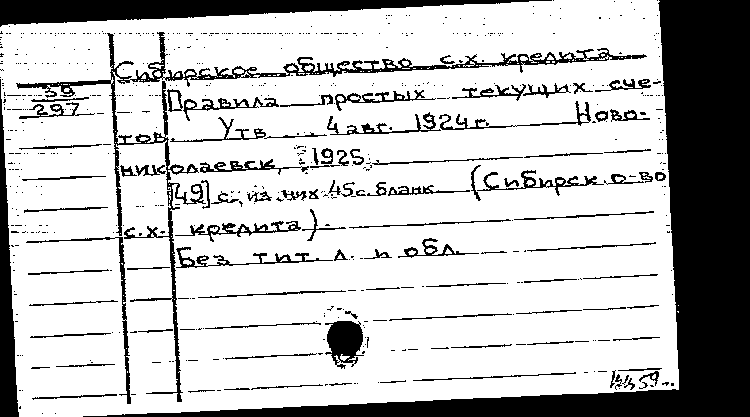 Сибирское общество с.х. кредита.
39
297
Правила простых текущих сче-
тов. Утв. .. 4 авг. 1924 г. Ново-
николаевск, 1925.
[49] с., из них 45 с. бланк. (Сибирск. о-во
с.х. кредита).
Без тит. л. и обл.